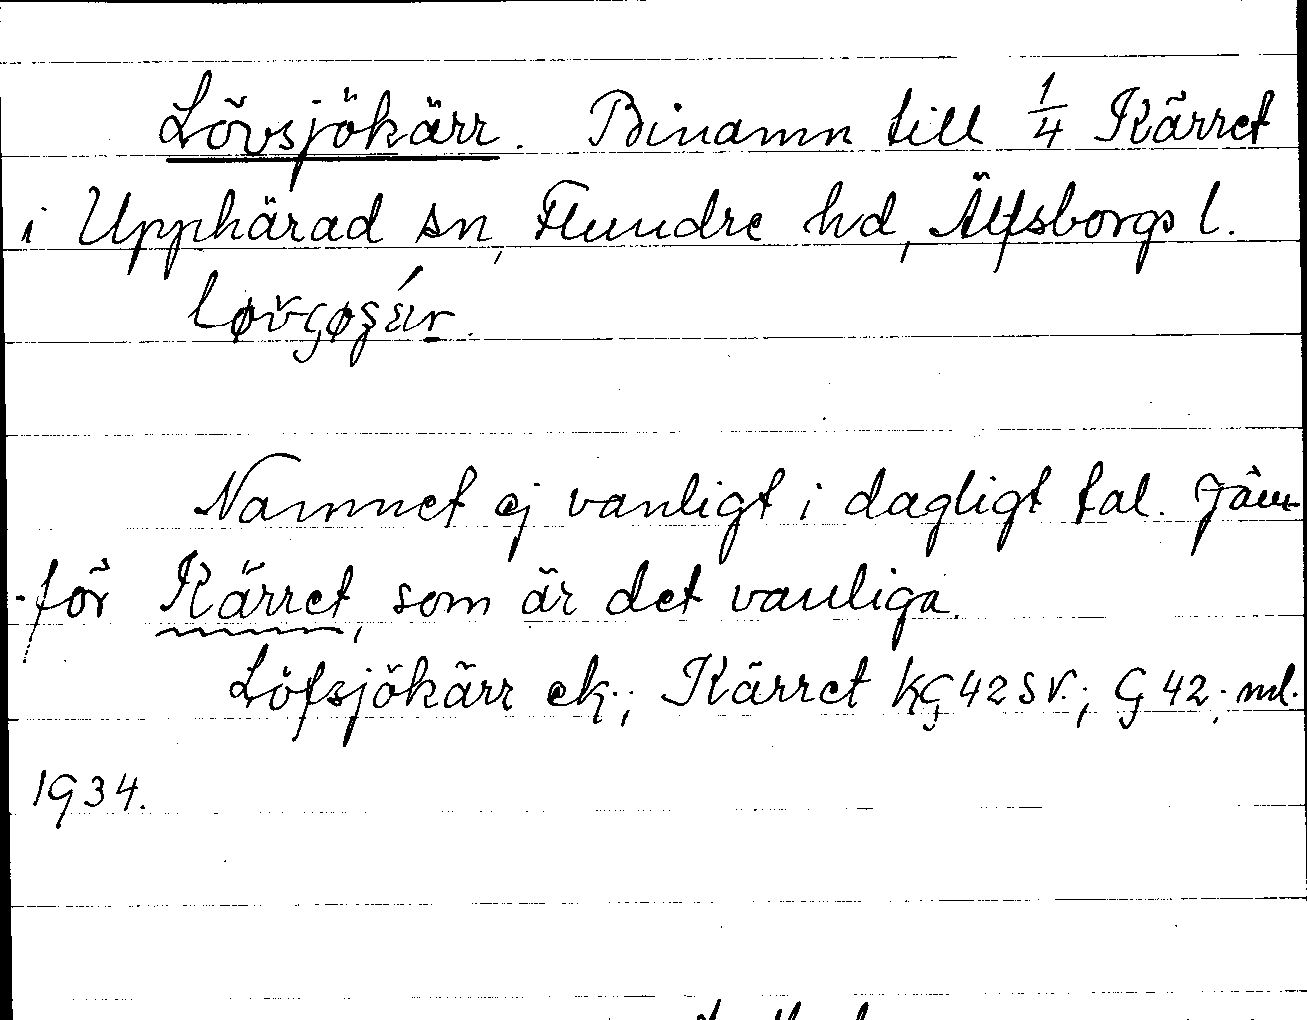 Lövsjökärr. Binamn till 1/4 Kärret
i Upphärad sn, Flundre hd, Älfsborgs l.
Namnet ej vanligt i dagligt tal. Jäm-
-för Kärret, som är det vanliga.
Löfsjökärr ek.; Kärret kG42SV.; G 42; ml.
1934.